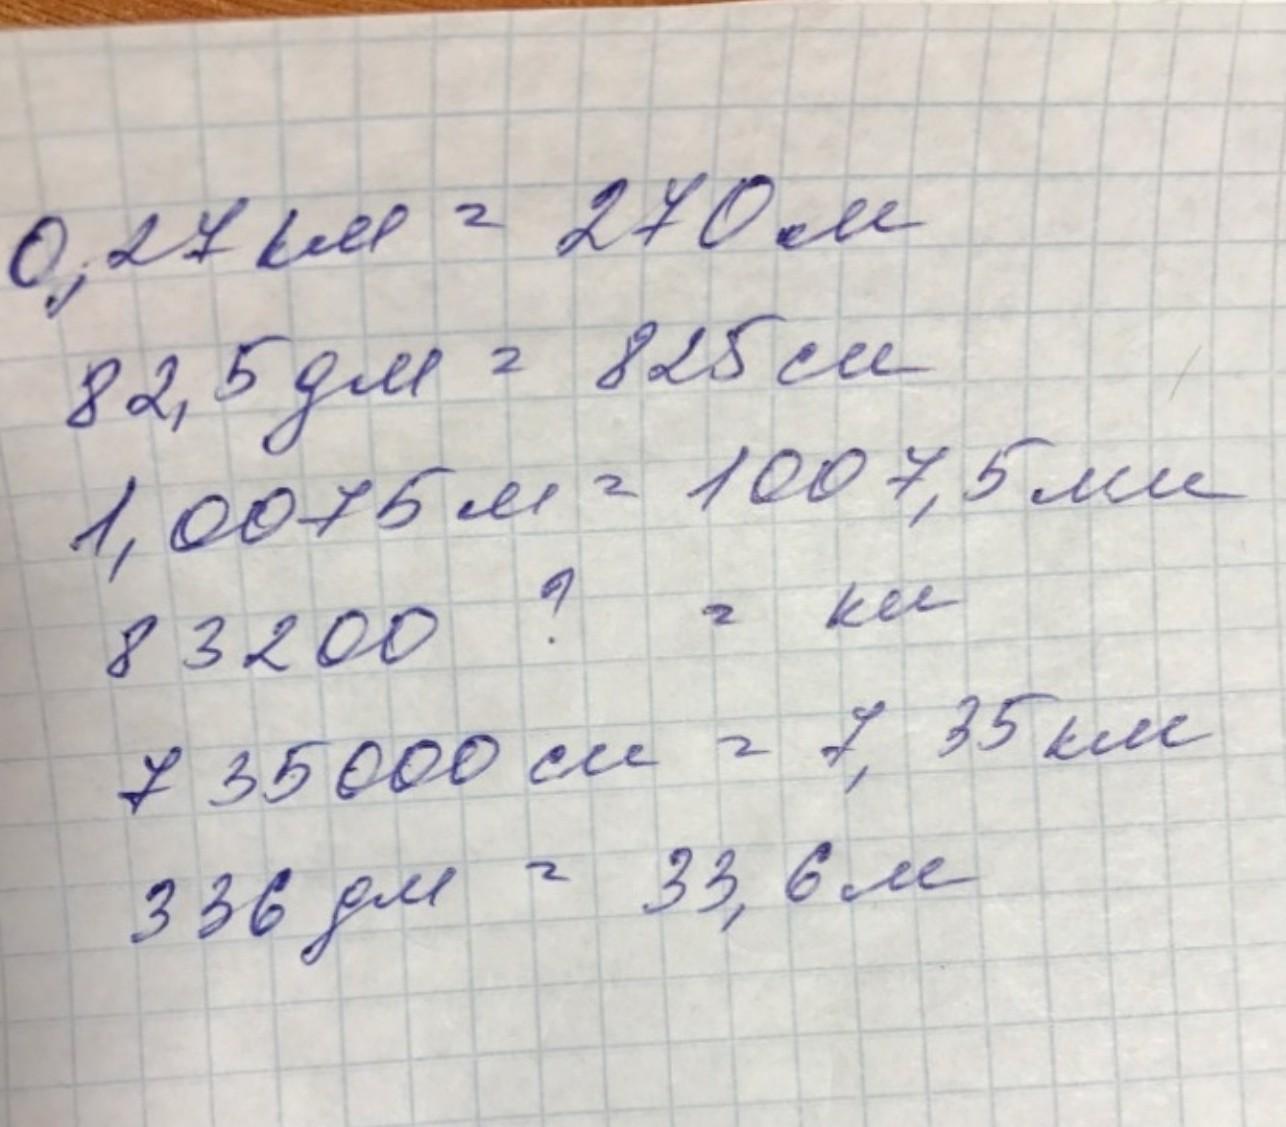 0,27 км = 270 м
82,5 дм = 825 см
1,0075 м = 1007,5 мм
83200 ? = км
735000 см = 7,35 км
336 дм = 33,6 м